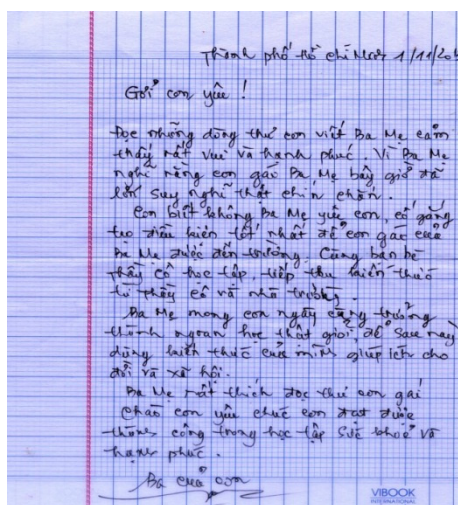 Thành phố Hồ Chí Minh 1/11/20
Gởi con yêu!
Đọc những dòng thư con viết Ba Mẹ cảm
thấy rất vui và hạnh phúc. Vì Ba Mẹ
nghĩ rằng con gái Ba Mẹ bây giờ đã
lớn suy nghĩ thật chín chắn.
Con biết không Ba Mẹ yêu con, cố gắng
tạo điều kiện tốt nhất để con gái của
Ba Mẹ được đến trường. Cùng bạn bè
thầy cô học tập, tiếp thu kiến thức
từ thầy cô và nhà trường,
Ba Mẹ mong con ngày càng trưởng
thành ngoan học thật giỏi, để sau này
dùng kiến thức của mình giúp ích cho
đời và xã hội.
Ba Mẹ rất thích đọc thư con gái
Chào con yêu chúc con đạt được
thành công trong học tập sức khỏe và
hạnh phúc.
Ba của con
VIBOOK
INTERNATIONAL